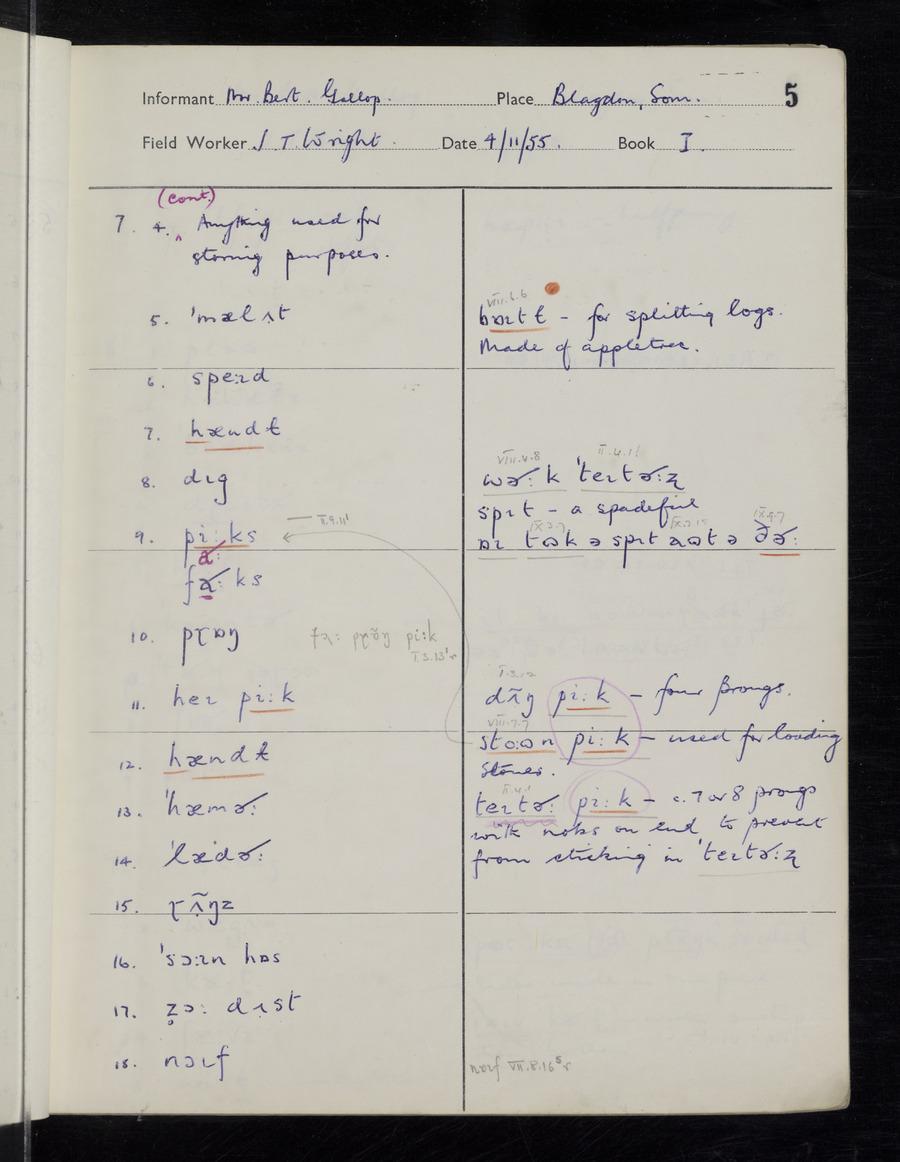 Informant Mr. Bert. Gallop. Place Blagdon, Som. 5
Field Worker J T. Wright. Date 4/11/55. Book I.
(cont.)
7. 4. Anything used for
storing purposes.
5. 'mælʌ̣t
6. speːɪd
7. hændɫ
8. dɪg
9. piːks
II.9.11'
fɚːks
10. pɽɒŋ
piːk
I.3.13'r
11. heɪ piːk
12. hændɫ
13. 'hæmɚː
14. 'lædɚː
15. ɽʌ̣̃ŋz
16. 'sɔːɪn hɒs
17. z̥ɔː dɪst
18. nɔɪf
VIII.6.6
bɒɪtɫ – for splitting logs.
Made of appletree.
VIII.4.8 II.4.1!
wɚːk 'teɪtɚːʐ
spɪt – a spadeful
IX.3.7 IX.9.7
ɒɪ tɷk ə spɪt aɷt ə ðɚː
I.3.12
dʌ̃ŋ piːk – four prongs.
VIII.7.7
stoːɷn piːk – used for loading
stones.
II.4.1
teɪtɚː piːk – c. 7 or 8 prongs
with nobs on end to prevent
from sticking in 'teɪtɚːʐ
nɔɪf VII.8.16⁵r